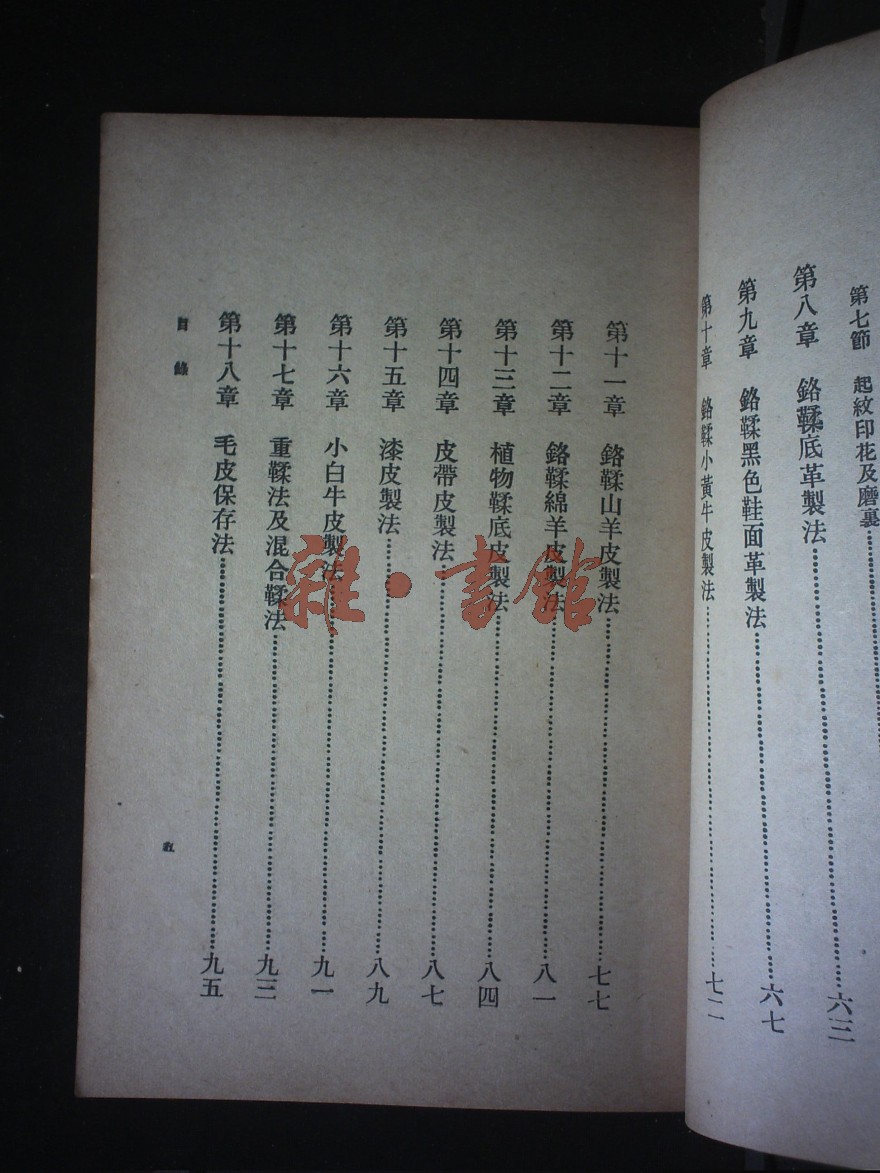 第七節 起紋印花及磨裏
第八章 鉻鞣底革製法 六三
第九章 鉻鞣黑色鞋面革製法 六七
第十章 鉻鞣小黃牛皮製法 七二
第十一章 鉻鞣山羊皮製法 七七
第十二章 鉻鞣綿羊皮製法 八一
第十三章 植物鞣底皮製法 八四
第十四章 皮帶皮製法 八七
第十五章 漆皮製法 八九
第十六章 小白牛皮製法 九一
第十七章 重鞣法及混合鞣法 九三
第十八章 毛皮保存法 九五
目錄
五
雜·書館